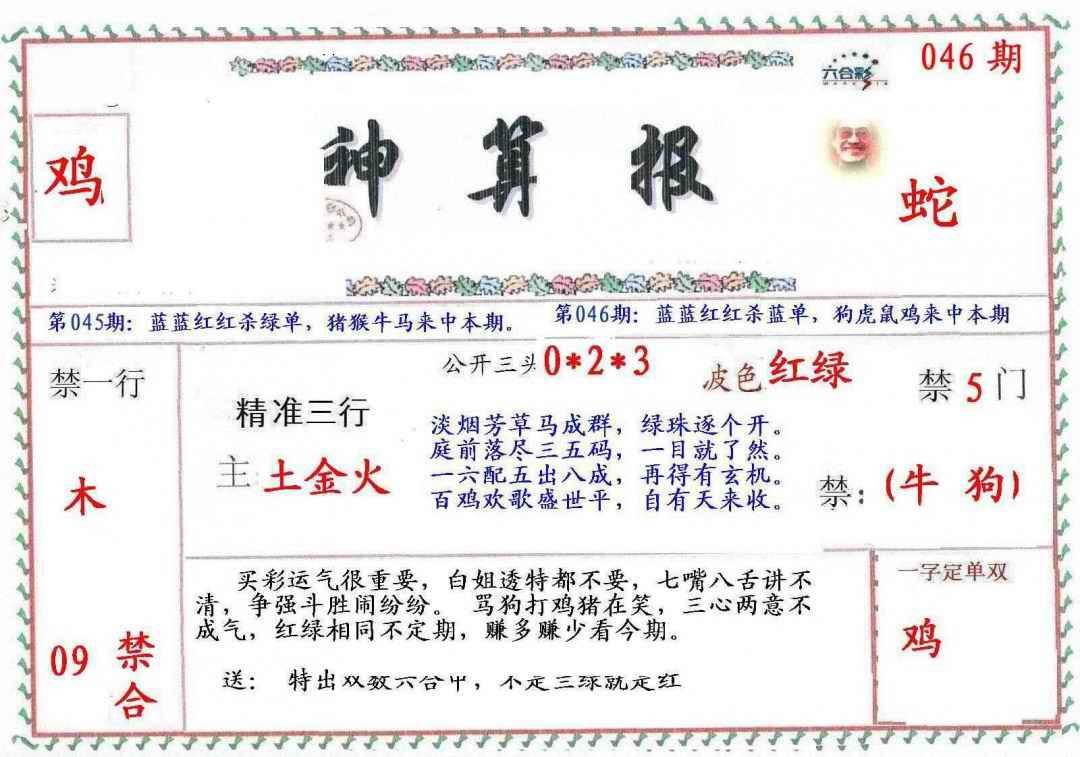 046 期
六合彩
鸡
神算报
蛇
第045期：蓝蓝红红杀绿单，猪猴牛马来中本期。
第046期：蓝蓝红红杀蓝单，狗虎鼠鸡来中本期
禁一行
木
09 禁合
公开三头0*2*3
波色红绿
禁 5 门
精准三行
主 土金火
淡烟芳草马成群，绿珠逐个开。
庭前落尽三五码，一目就了然。
一六配五出八成，再得有玄机。
百鸡欢歌盛世平，自有天来收。
禁：(牛 狗)
买彩运气很重要，白姐透特都不要，七嘴八舌讲不
清，争强斗胜闹纷纷。 骂狗打鸡猪在笑，三心两意不
成气，红绿相同不定期，赚多赚少看今期。
送： 特出双数六合中，不是三绿就是红
一字定单双
鸡